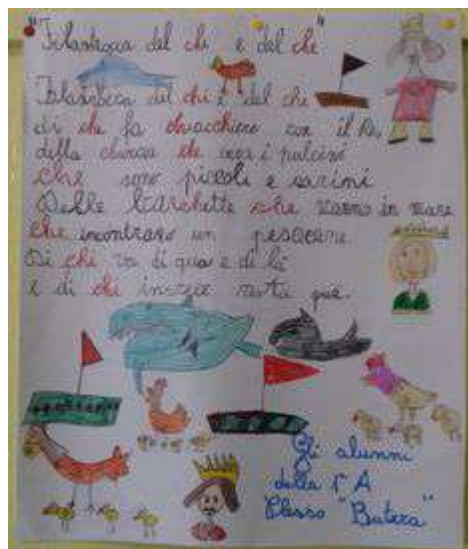 "Filastrocca del chi e del che"
Filastrocca del chi e del che
di chi fa chiacchiere con il Re,
della chioccia che cova i pulcini
che sono piccoli e carini
Delle barchette che vanno in mare
che incontrano un pescecane.
Di chi va di qua e di là
e di chi invece resta qua.
Gli alunni
della 1ª A
Plesso "Butera"